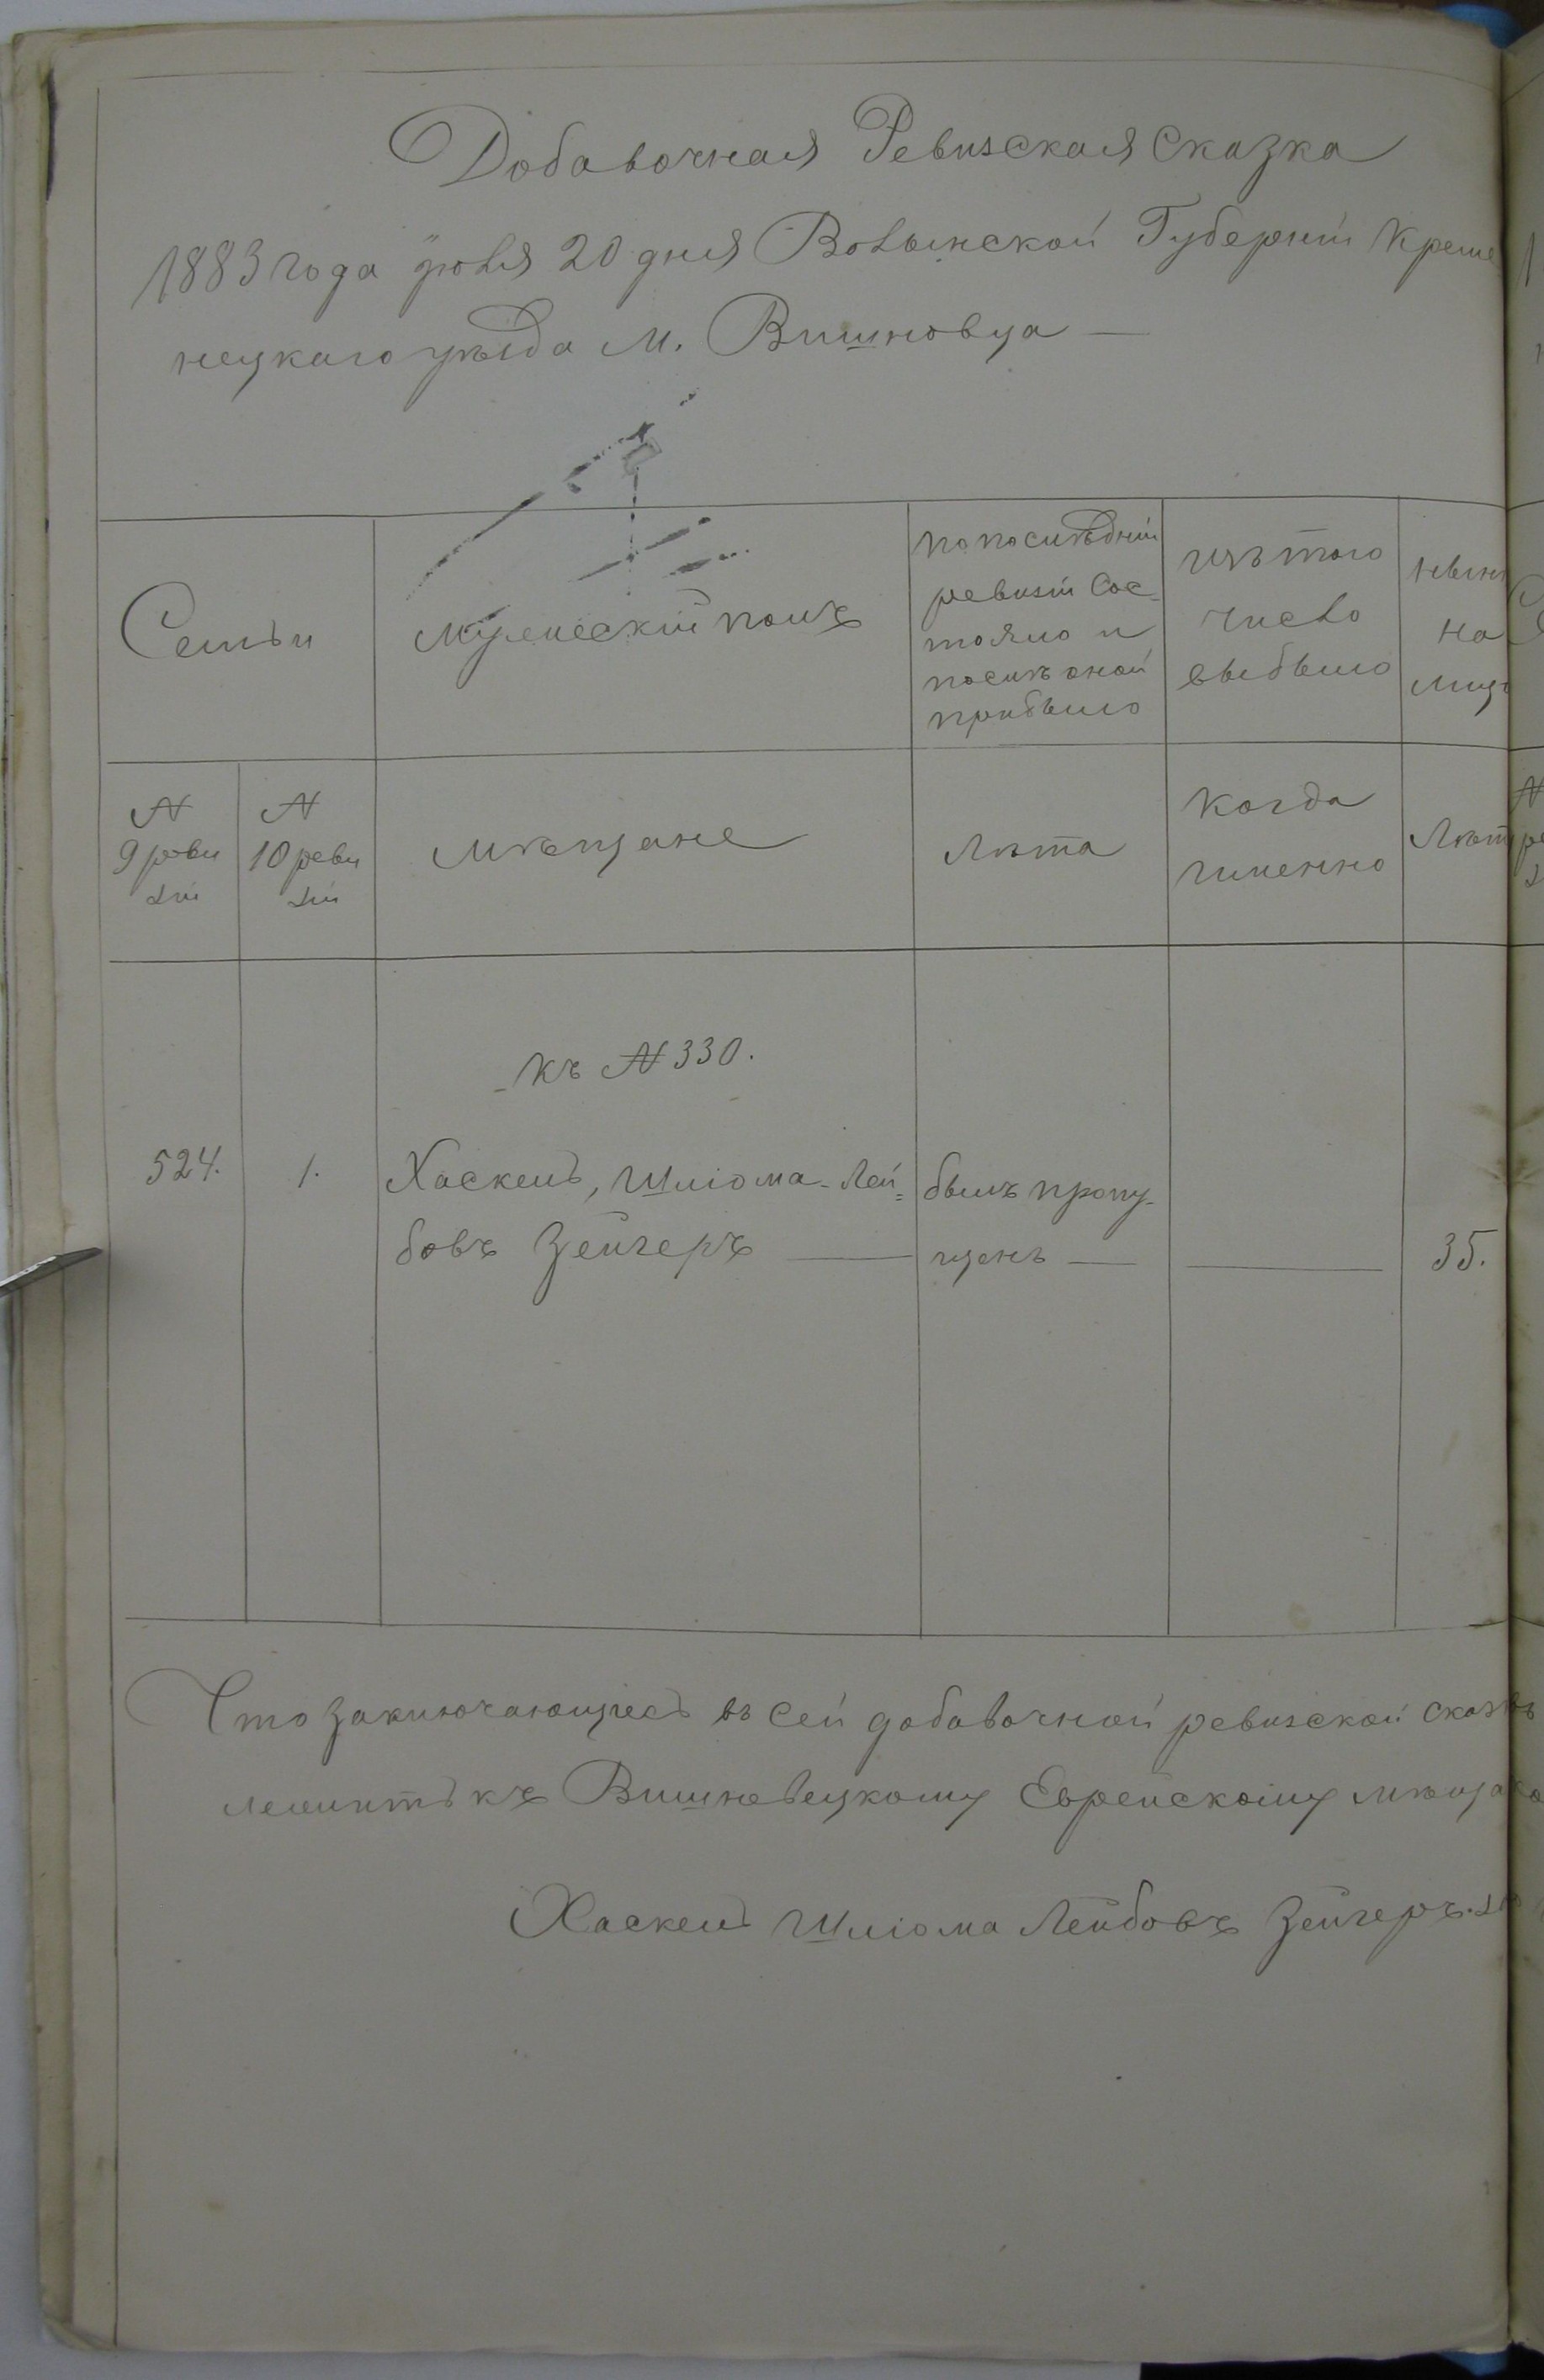 Добавочная Ревизская Сказка
1883 года Іюля 20 дня Волынской Губерніи Креме
нецкаго уѣзда м. Вишновца —
Семьи
Мужескій полъ
по послѣдній
ревизіи Сос-
тояло и
послѣ оной
прибыло
изъ того
число
выбыло
нынѣ
на
лицо
№
9 реви
зіи
№
10 реви
зіи
мѣщане
Лѣта
когда
именно
Лѣта
къ № 330.
524.
1.
Хаскель, Шліома-Лей=
бовъ Зейгеръ —
былъ пропу-
щенъ —
—
35.
Что заключающіесь въ сей добавочной ревизской сказкѣ
къ Вишневецкому Еврейскому
Хаскель Шліома Лейбовъ Зейгеръ.